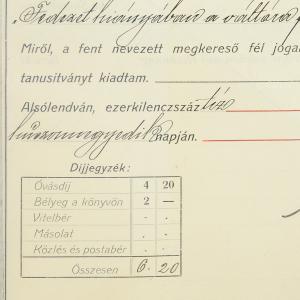 „Fedezet hiányában a váltóra
Miről, a fent nevezett megkereső fél joga
tanusítványt kiadtam.
Alsólendván, ezerkilenczszáz tíz
huszonnegyedik napján.
Díjjegyzék:
Óvásdíj 4 20
Bélyeg a könyvön 2 —
Vitelbér . .
Másolat . .
Közlés és postabér . .
Összesen 6. 20